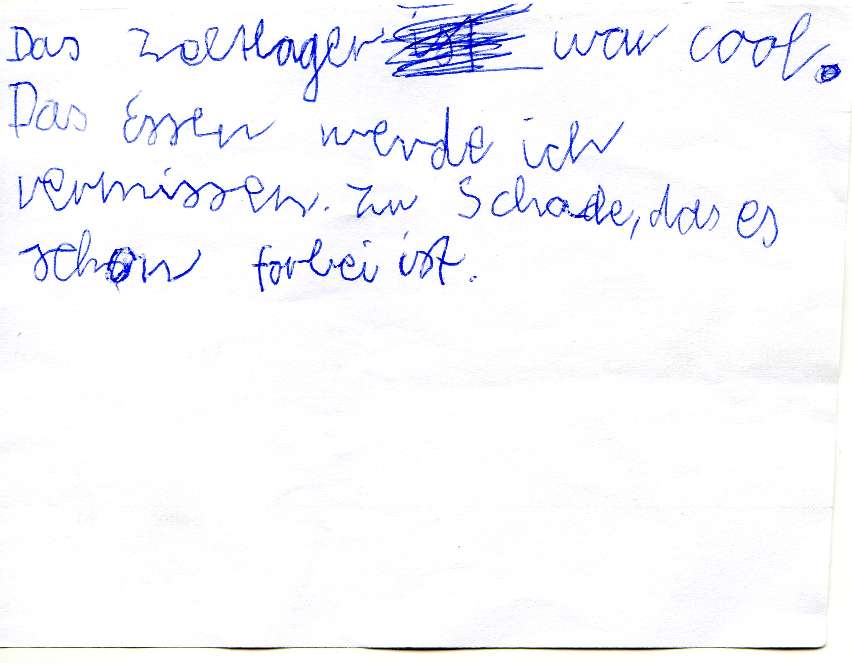 Das Zeltlager war cool.
Das Essen werde ich
vermissen. Zu Schade, das es
schon forbei ist.